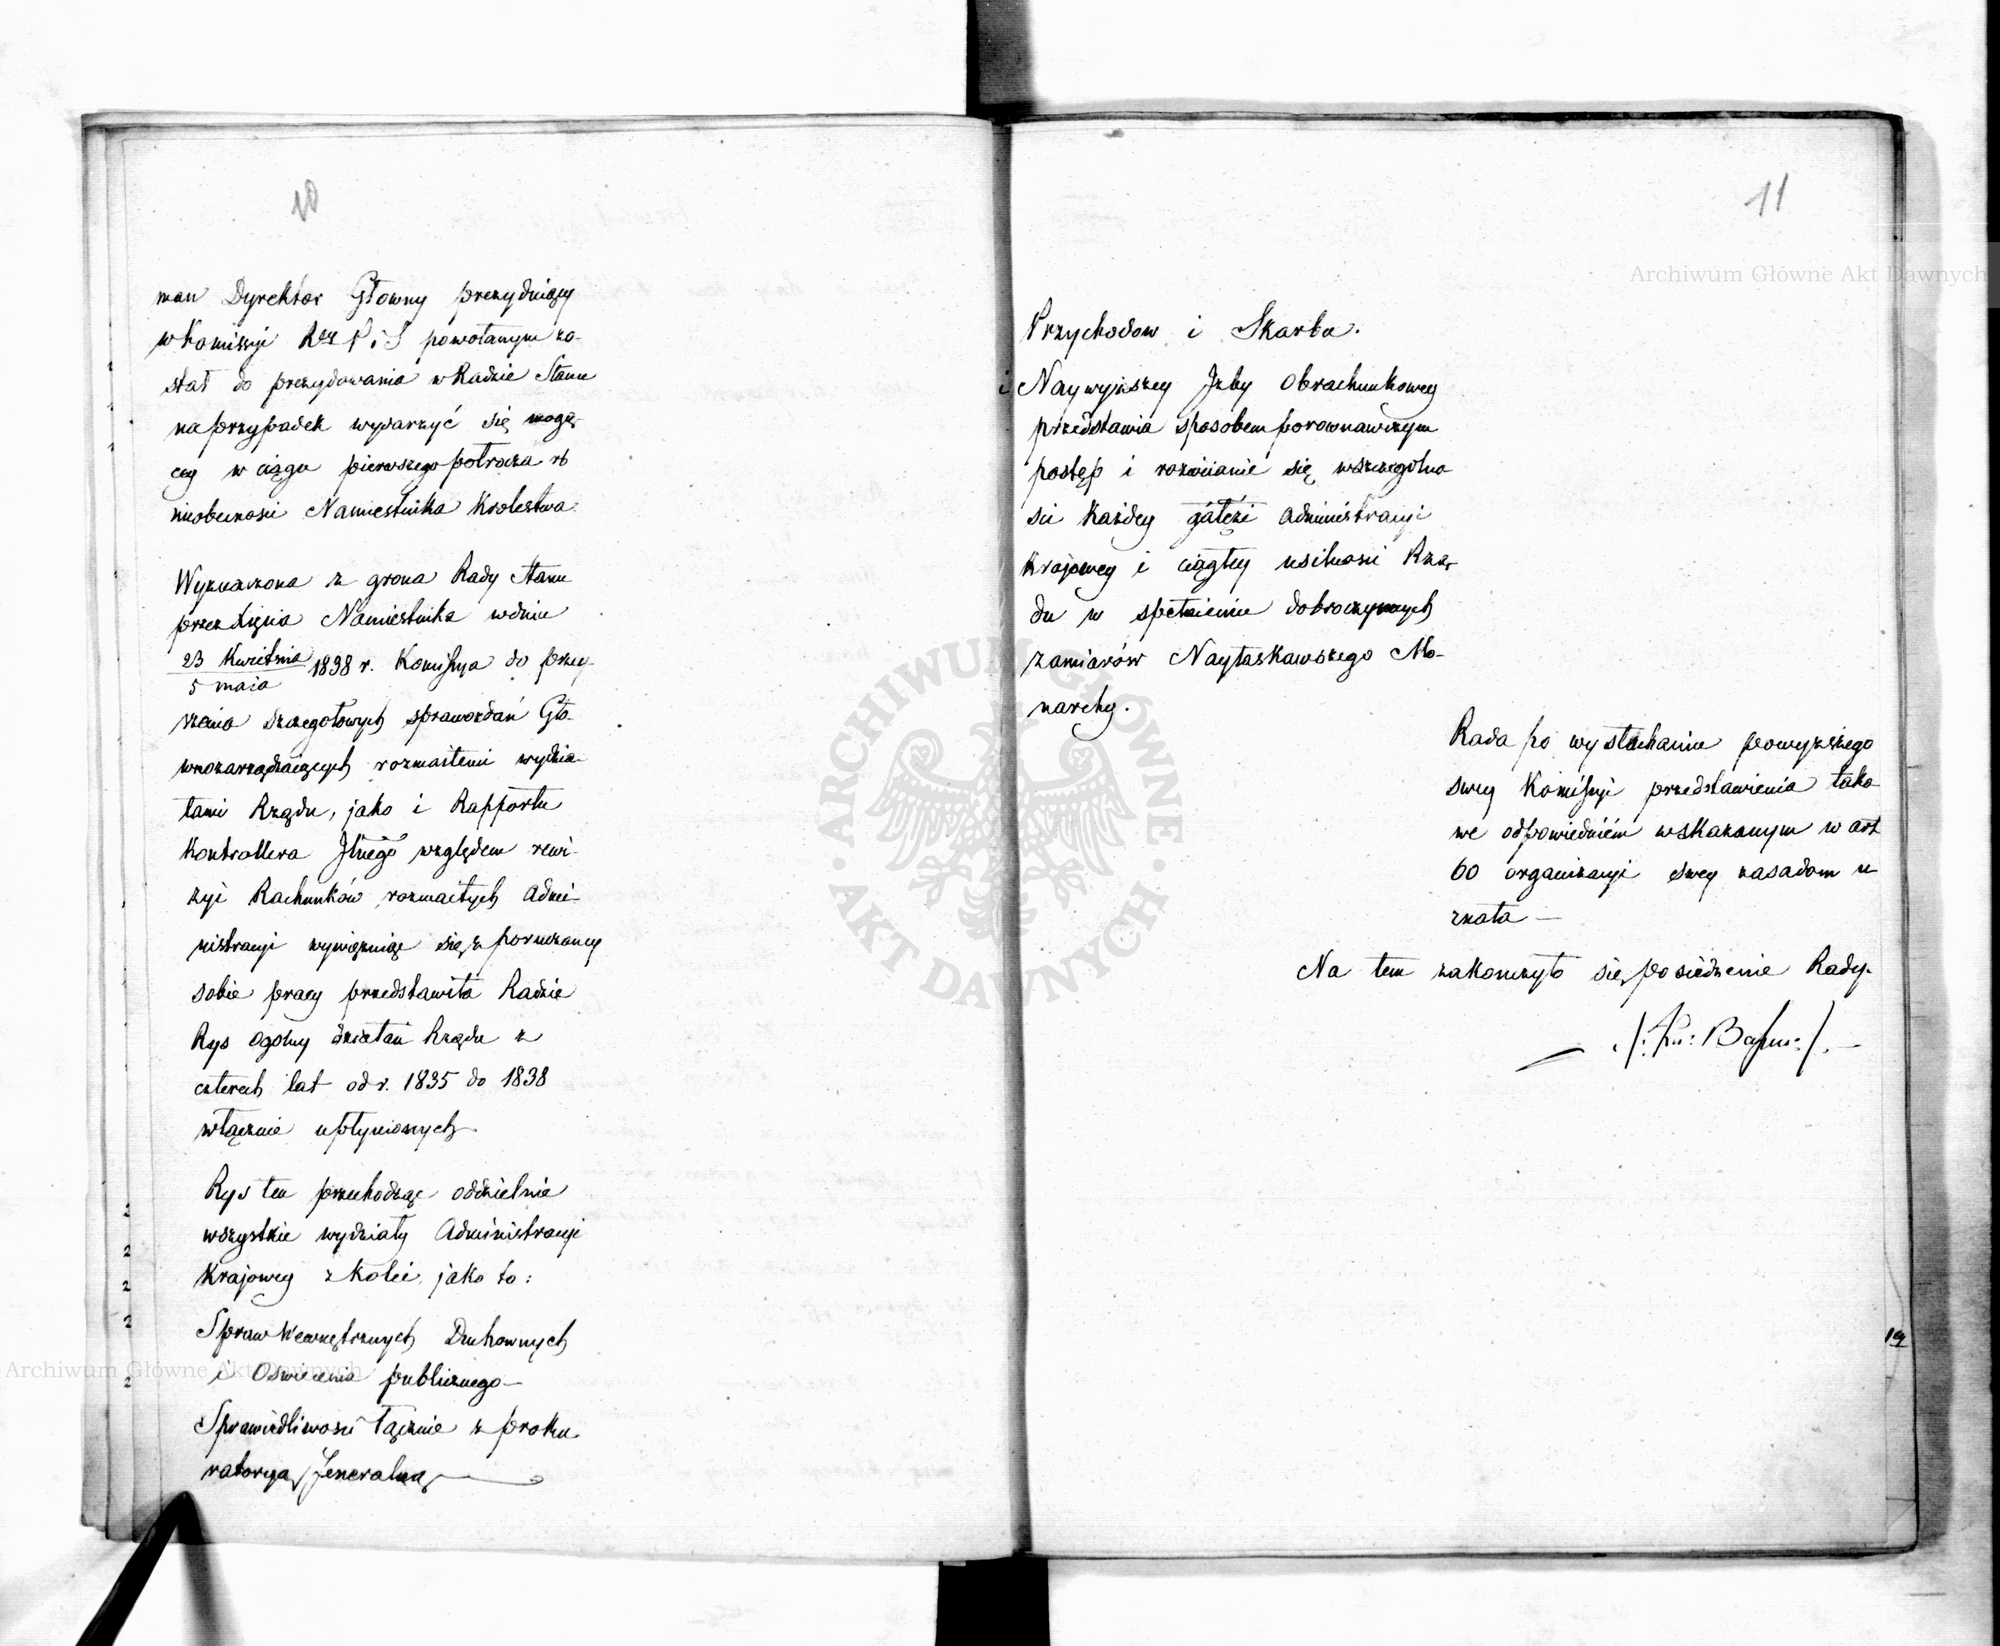 10
man Dyrektor Głowny prezydujący
w Komissyi Rzz P. i S powołanym zo-
stał do prezydowania w Radzie Stanu
na przypadek wydarzyć się mogą-
cey w ciągu pierwszego połrocza rb
nieobecnosci Namiestnika Krolestwa.
Wyznaczona z grona Rady Stanu
przez Xięcia Namiestnika w dniu
23 Kwietnia
5 maja
1838 r. Komissya do przey-
rzenia szczegołowych sprawozdań Gło-
wnozarządzaiących rozmaitemi wydzia-
łami Rządu, jako i Rapportu
Kontrollera Jlnego względem rewi-
zyi Rachunków rozmaitych Admi-
nistracyi wywięzuiąc się z poruczoney
sobie pracy przedstawiła Radzie
Rys ogolny działań Rządu z
czterech lat od r. 1835 do 1838
włącznie upłynionych.
Rys ten przechodząc oddzielnie
wszystkie wydziały Administracyi
Krajowey z kolei, jako to:
Spraw Wewnętrznych Duchownych
i Oświecenia publicznego—
Sprawiedliwosci łącznie z proku
ratoryą Jeneralną
11
Przychodow i Skarbu.
i Naywyższey Jzby Obrachunkowey
przedstawia sposobem porownawczym
postęp i rozwianie się w szczegolno
sci każdey gałęzi administracyi
krajowey i ciągłey usilnosci Rzą-
du w spełnieniu dobroczynnych
zamiarów Nayłaskawszego Mo-
narchy.
Rada po wysłuchaniu powyższego
swey Komissyi przedstawienia tako
we odpowiedniém wskazanym w art
60 organizacyi swey zasadom u
znała —
Na tem zakonczyło się posiedzenie Rady.
19
Archiwum Główne Akt Dawnych
Archiwum Główne Akt Dawnych
· ARCHIWUM GŁÓWNE · AKT DAWNYCH